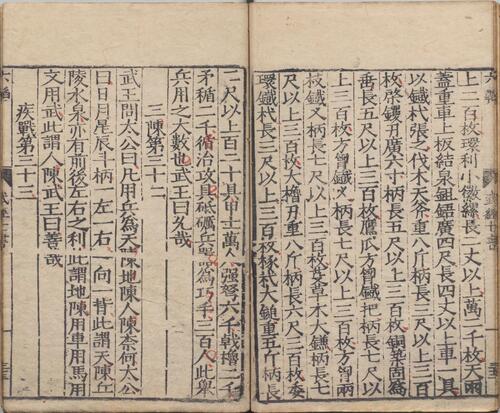 上二百枚環利小徽縲長二丈以上萬二千枚天雨
蓋重車上板結枲鉏鋙廣四尺長四丈以上車一具
以鐵杙張之伐木大斧重八斤柄長三尺以上三百
枚棨钁刃廣六寸柄長五尺以上三百枚銅築固爲
垂長五尺以上三百枚鷹瓜方胷鐵把柄長七尺以
上三百枚方胷鐵叉柄長七尺以上三百枚方胷兩
枝鐵叉柄長七尺以上三百枚芟草木大鎌柄長七
尺以上三百枚大櫓刃重八斤柄長六尺三百枚委
環鐵杙長三尺以上三百枚椓杙大鎚重五斤柄長
二尺以上百二十具甲士萬人強弩六千戟櫓二千
矛楯二千循治攻具砥礪兵器爲巧手三百人此舉
兵用之大數也武王曰允哉
三陳第三十二
武王問太公曰凡用兵爲天陳地陳人陳奈何太公
曰日月星辰斗柄一左一右一向一背此謂天陳丘
陵水泉亦有前後左右之利此謂地陳用車用馬用
文用武此謂人陳武王曰善哉
疾戰第三十三
六韜